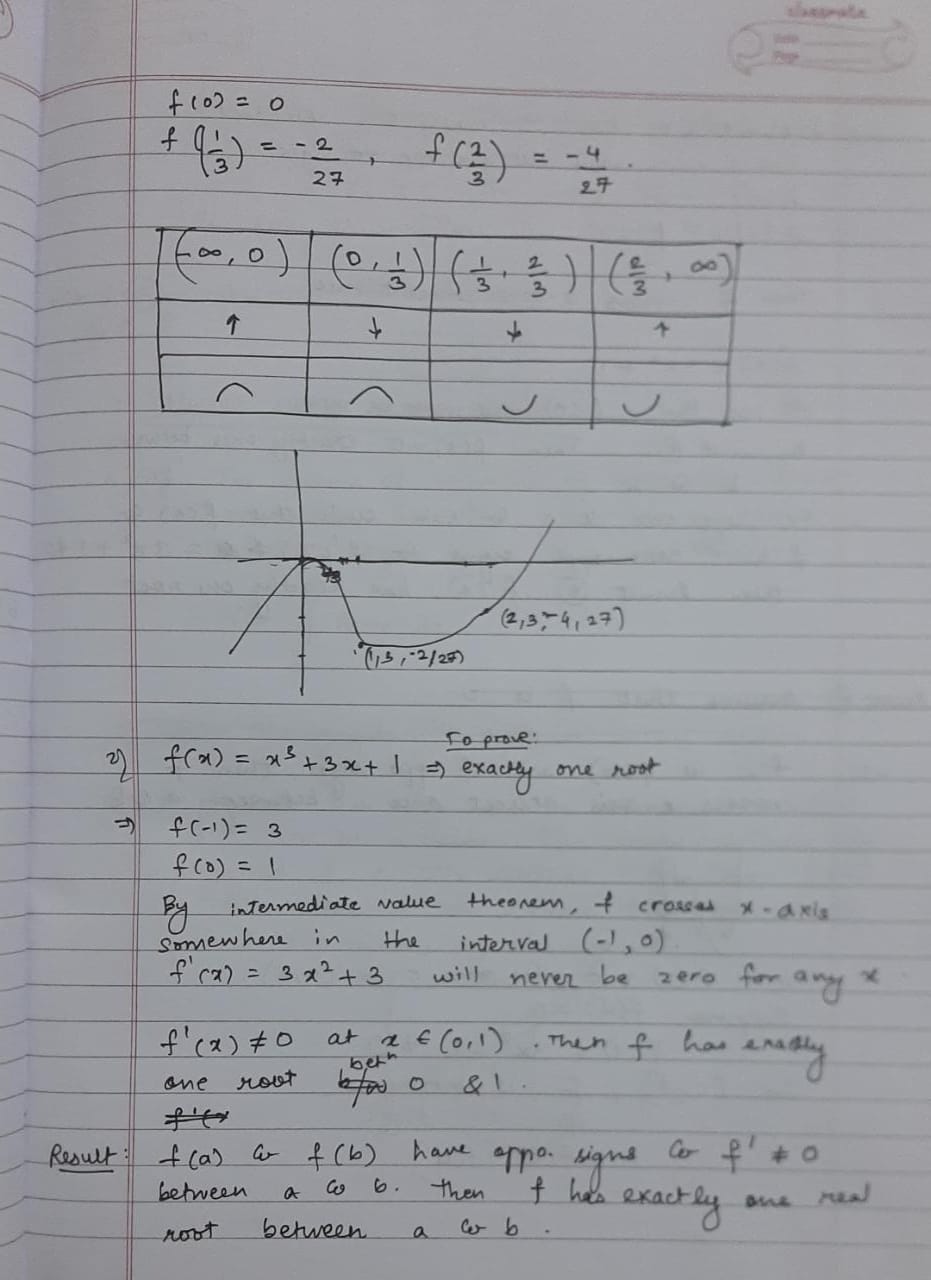 classmate
Date
Page
f(0) = 0
f(1/3) = -2/27 , f(2/3) = -4/27 .
(-∞, 0) | (0, 1/3) | (1/3, 2/3) | (2/3, ∞)
↑ | ↓ | ↓ | ↑
⌢ | ⌢ | ⌣ | ⌣
(2,3,-4,27)
(1,3,-2/27)
To prove:
2) f(x) = x³ + 3x + 1 ⇒ exactly one root
⇒ f(-1) = 3
f(0) = 1
By intermediate value theorem, f crosses x-axis
somewhere in the interval (-1, 0)
f'(x) = 3x² + 3 will never be zero for any x
f'(x) ≠ 0 at x ∈ (0,1) . Then f has exactly
one root betn 0 & 1 .
Result: f(a) & f(b) have oppo. signs & f' ≠ 0
between a & b. then f has exactly one real
root between a & b .